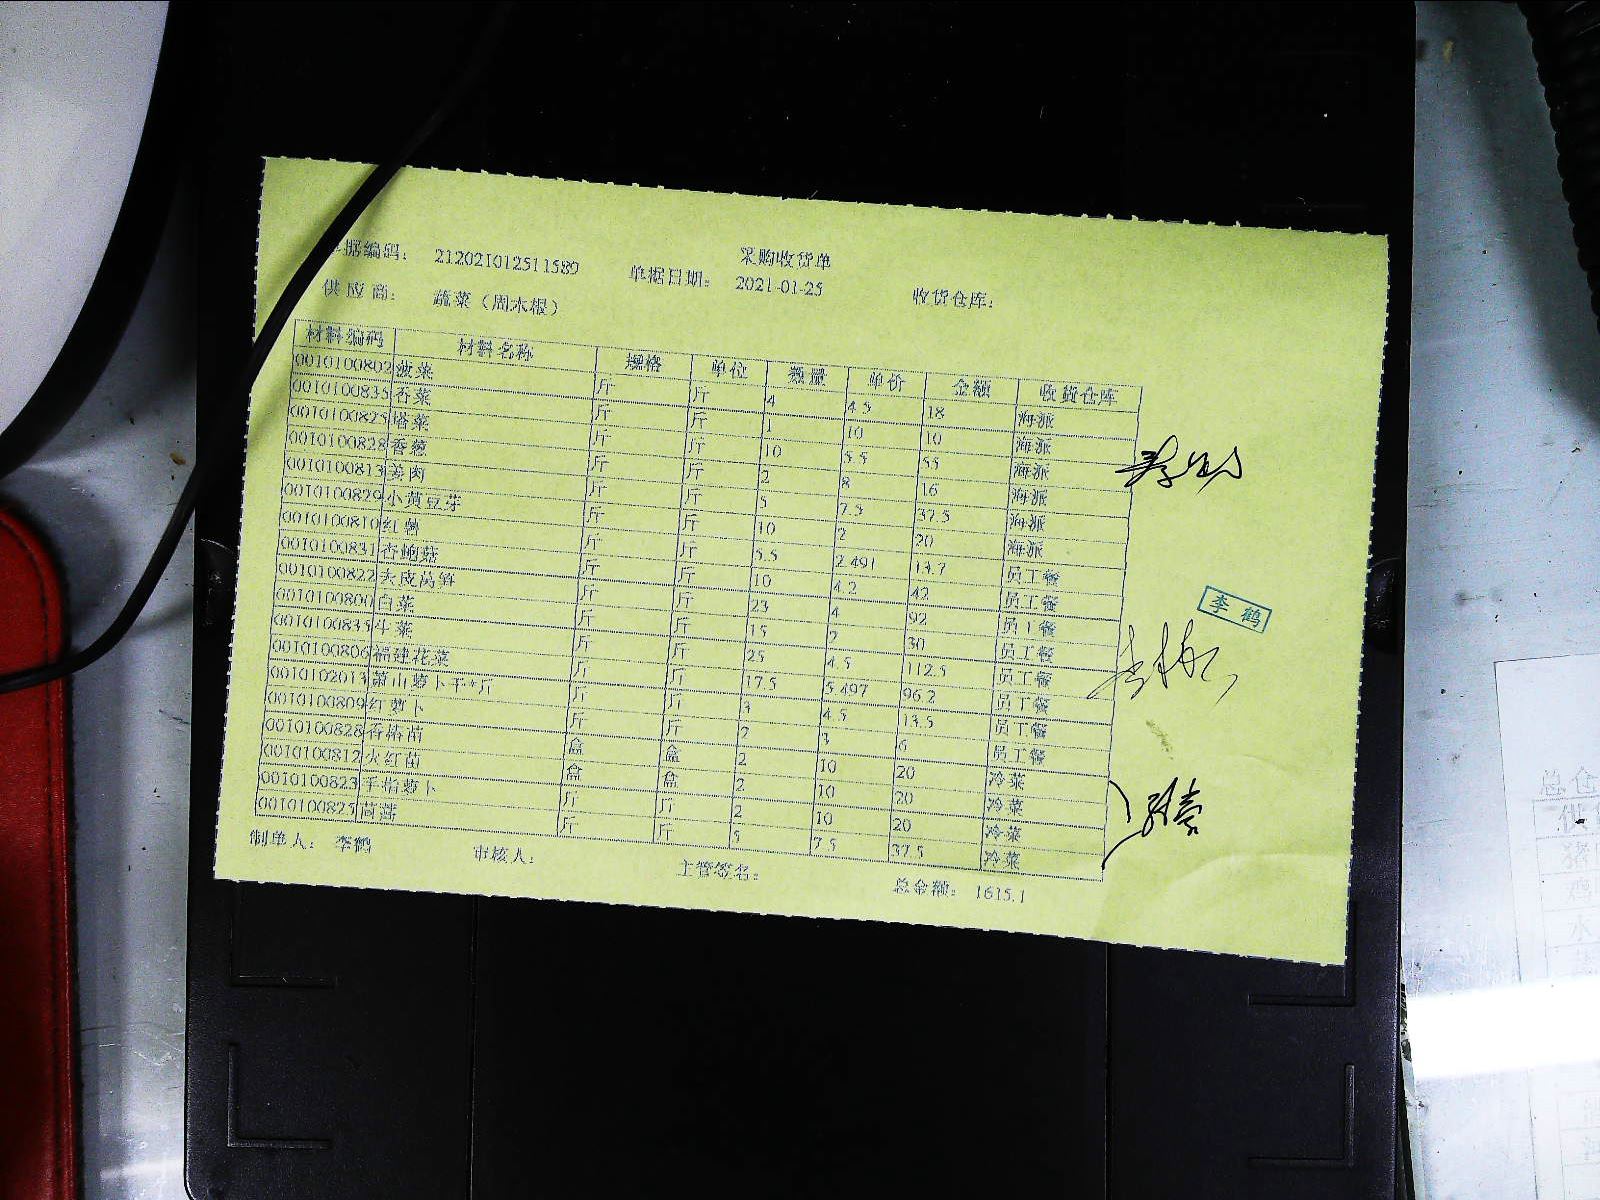 采购收货单
单据编码： 212021012511580 单据日期： 2021-01-25 收货仓库：
供应商： 蔬菜（周木根）
材料编码 材料名称 规格 单位 数量 单价 金额 收货仓库
0010100802 菠菜 斤 斤 4 4.5 18 海派
0010100835 香菜 斤 斤 1 10 10 海派
0010100825 塔菜 斤 斤 10 5.5 55 海派
0010100828 香葱 斤 斤 2 8 16 海派
0010100813 姜肉 斤 斤 5 7.5 37.5 海派
0010100829 小黄豆芽 斤 斤 10 2 20 海派
0010100810 红薯 斤 斤 5.5 2.491 13.7 员工餐
0010100831 杏鲍菇 斤 斤 10 4.2 42 员工餐
0010100822 去皮莴笋 斤 斤 23 4 92 员工餐
0010100800 白菜 斤 斤 15 2 30 员工餐
0010100835 斗菜 斤 斤 25 4.5 112.5 员工餐
0010100806 福建花菜 斤 斤 17.5 5.497 96.2 员工餐
0010102013 萧山萝卜干*斤 斤 斤 3 4.5 13.5 员工餐
0010100809 红萝卜 斤 斤 2 3 6 员工餐
0010100828 香椿苗 盒 盒 2 10 20 冷菜
0010100812 火红苗 盒 盒 2 10 20 冷菜
0010100823 手指萝卜 斤 斤 2 10 20 冷菜
0010100825 茼蒿 斤 斤 5 7.5 37.5 冷菜
制单人： 李鹤 审核人： 主管签名： 总金额： 1615.1
李鹤